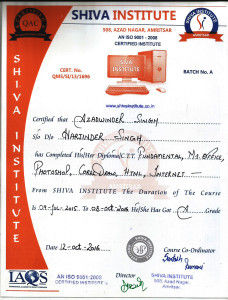 SHIVA INSTITUTE
508, AZAD NAGAR, AMRITSAR
AN ISO 9001 : 2008
CERTIFIED INSTITUTE
QAC
SHIVA INSTITUTE
CERT. No.
QMS/SI/13/1696
SHIVA
INSTITUTE
BATCH No. A
www.shivainstitute.co.in
Certified that Azadwinder Singh
S/o D/o Harjinder Singh
has Completed His/Her Diploma/C.T.T. Fundamental, M.S. Office,
Photoshop, Corel Draw, Html, Internet
From SHIVA INSTITUTE The Duration of The Course
is 09-Jul-2015 To 08-Oct-2016 He/She Has Got A Grade
Date 12-Oct-2016
Course Co-ordinator
Director
IAQS
AN ISO 9001:2008
CERTIFIED INSTITUTE
SHIVA INSTITUTE
508, Azad Nagar,
Amritsar